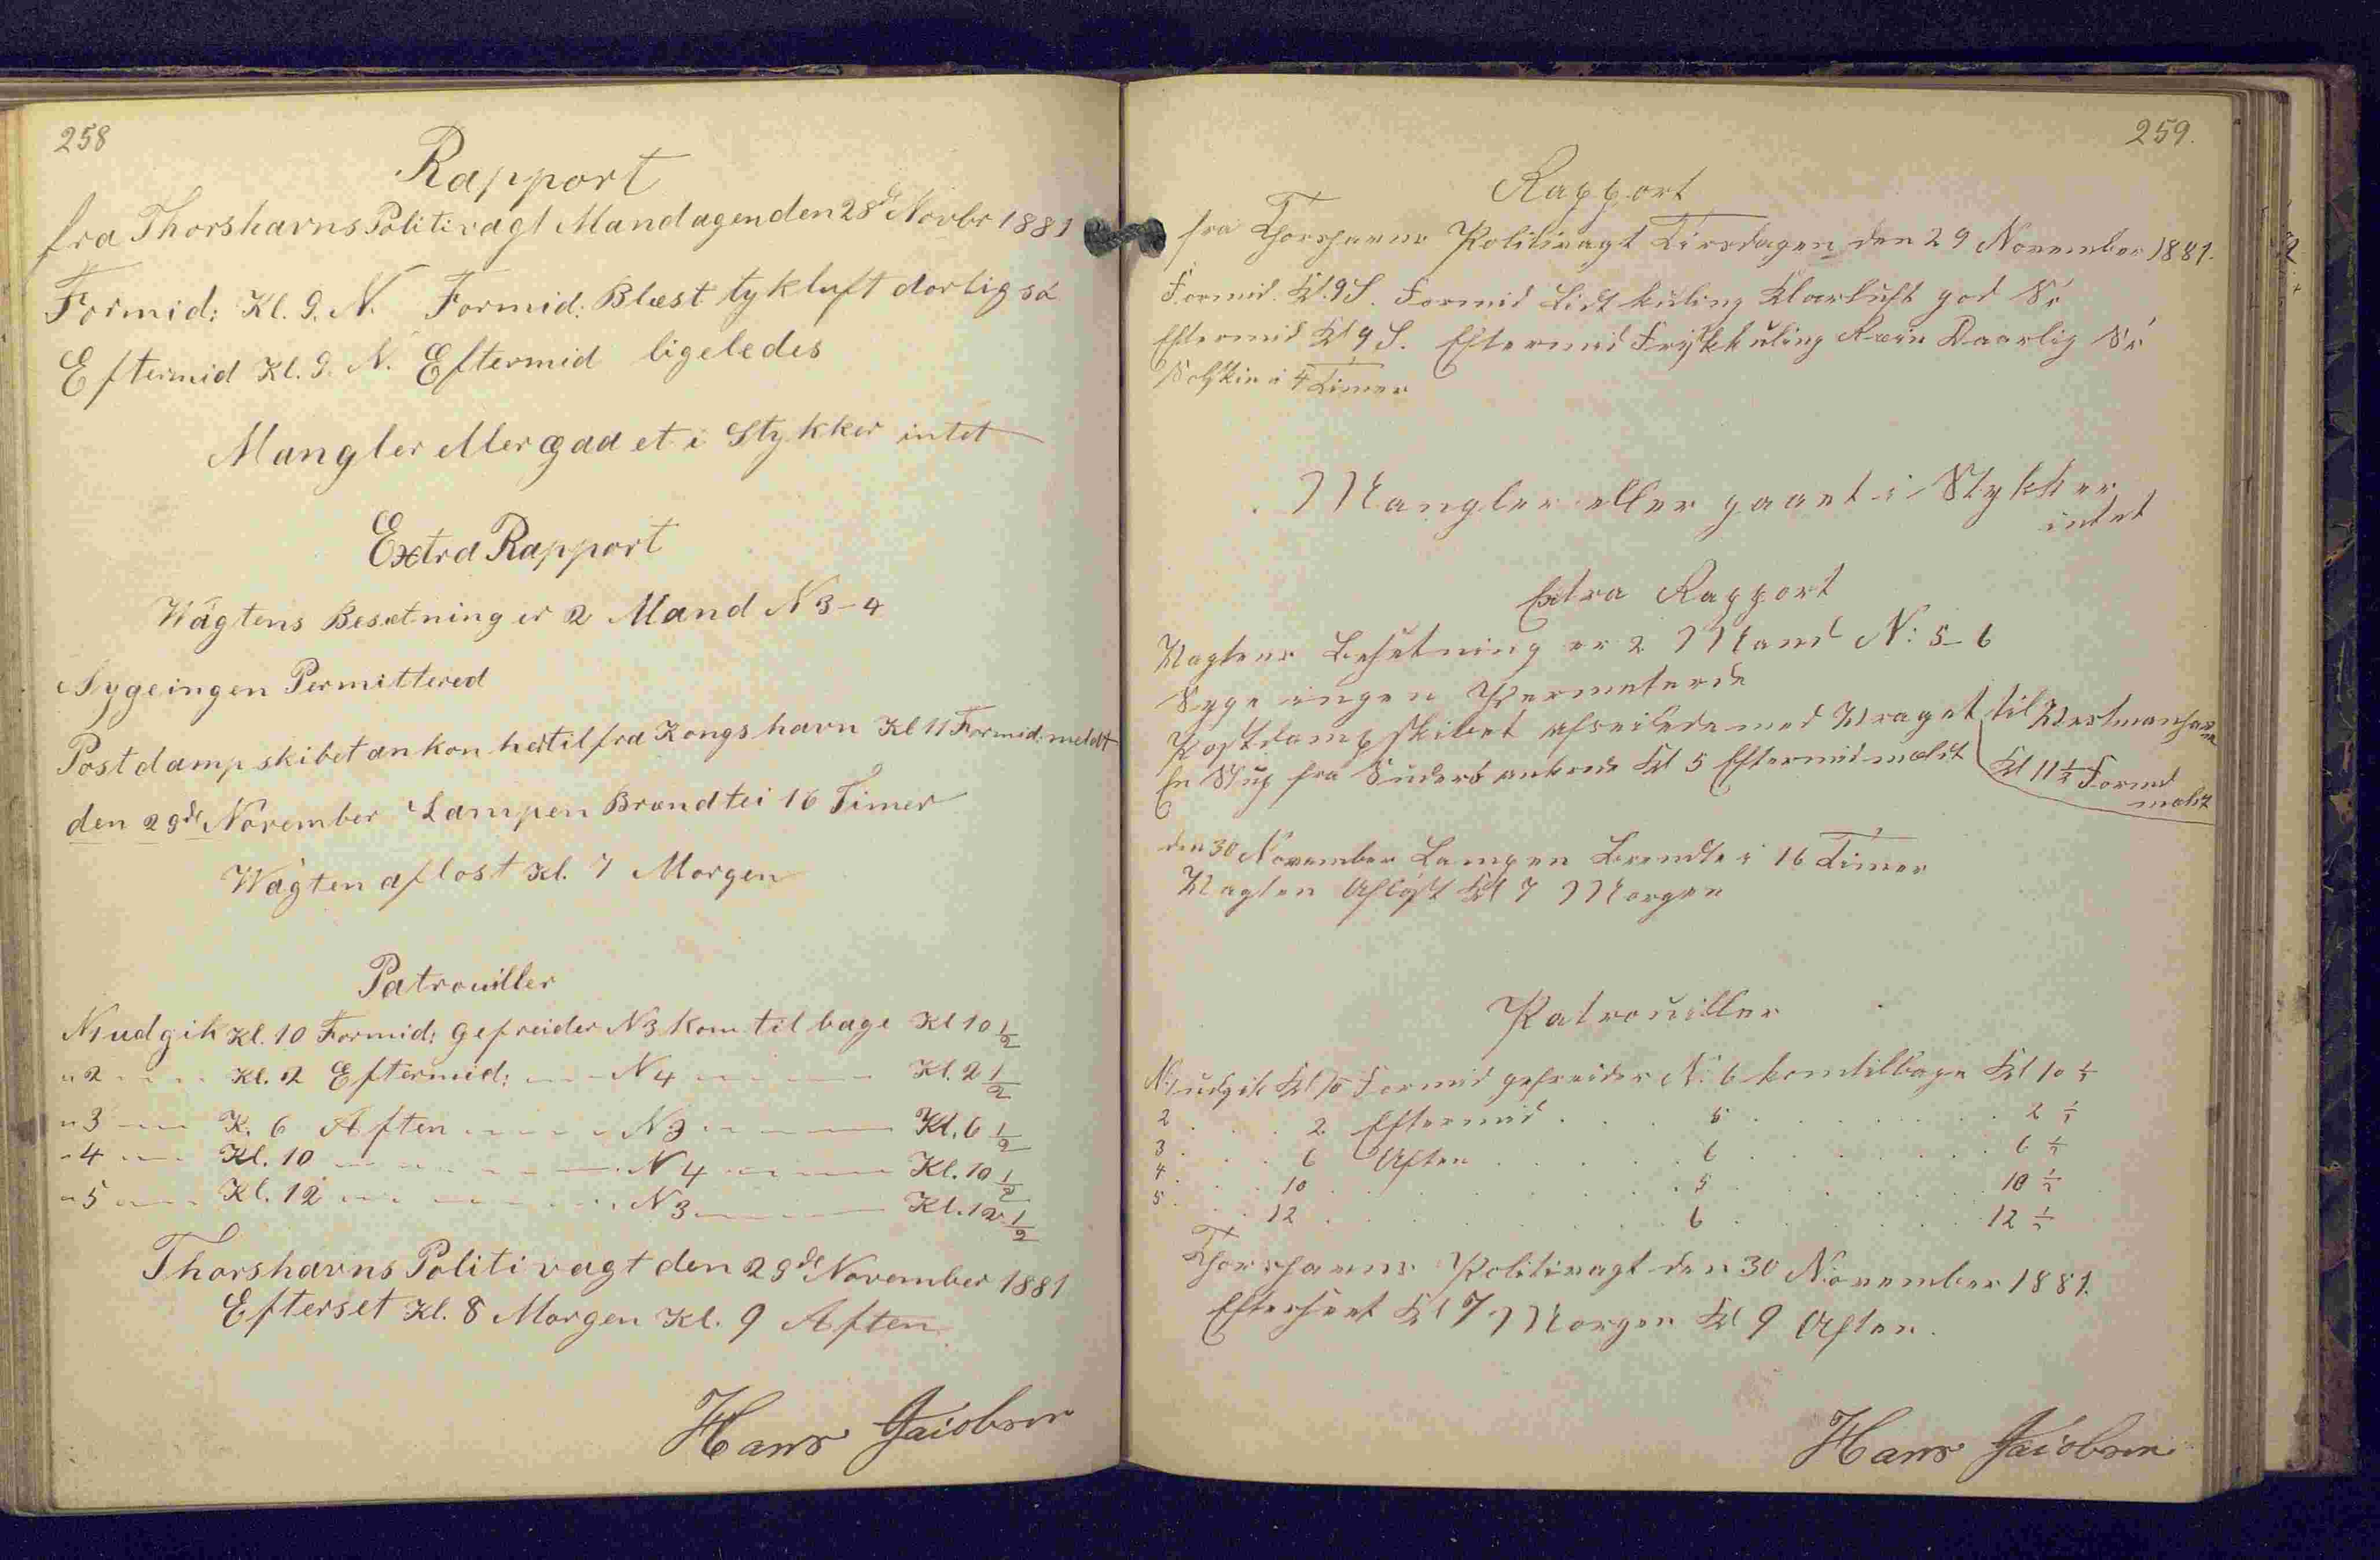 258
Rapport
fra Thorshavns Politivagt Mandagen den 28de Novbr 1881
Formid: Kl. 9. N. Formid: Blæst tykluft dorlig sö
Eftermid Kl. 9. N. Eftermid ligeledes
Mangler eller gaaet i Stykker intet
Extra Rapport
Wagtens Besætning er 2 Mand N 3-4
Syge ingen Permittered
Postdampskibet ankon hertil fra Kongshavn Kl 11 Formid: meldt
den 29de November Lampen Brændte i 16 Timer
Wagten aflost Kl. 7 Morgen
Patrouiller
N1 udgik Kl. 10 Formid: gefreider N3 kom tilbage Kl 10 1/2
" 2 Kl. 2 Eftermid: N4 Kl. 2 1/2
" 3 K. 6 Aften N3 Kl. 6 1/2
" 4 Kl. 10 N4 Kl. 10 1/2
" 5 Kl. 12 N3 Kl. 12 1/2
Thorshavns Politivagt den 29de November 1881
Efterset Kl. 8 Morgen Kl. 9 Aften
Hans Jaiobsen
259.
Rapport
fra Thorshavns Politivagt Tirsdagen den 29 November 1881.
Formid. Kl. 9 S. Formid Lidt kuling Klarluft god Sö
Eftermid Kl 9 S. Eftermid Friskkuling Ræin Daarlig Sö
Solskin i 4 Timer
Mangler eller gaaet i Stykker
intet
Extra Rapport
Wagtens Besetning er 2 Mand N: 5-6
Syge ingen Permeterde
Postdampskibet afseilede med Wraget til Westmanhavn
Kl 11 1/2 Formd
meldt
En Slup fra Suderö ankom Kl 5 Eftermid meldt
den 30 November Lampen Brendte i 16 Timer
Wagten Afløst Kl 7 Morgen
Patrouiller
N:1 udgik Kl 10 Formid gefreider N: 6 kom tilbage Kl 10 1/2
2 . . . 2 Eftermid . . 5 . . . 2 1/2
3 . . . 6 Aften . . 6 . . . 6 1/2
4 . . . 10 . . . 5 . . . 10 1/2
5 . . . 12 . . . 6 . . . 12 1/2
Thorshavns Politivagt den 30 November 1881.
Efterseet Kl 7 Morgen Kl 9 Aften.
Hans Jaiobsen